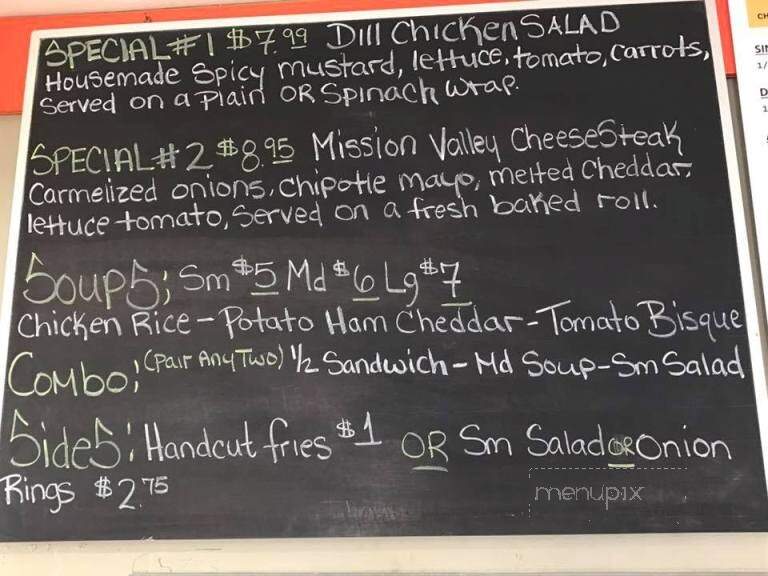 SPECIAL #1 $7.99 Dill Chicken SALAD
Housemade Spicy mustard, lettuce, tomato, carrots,
Served on a Plain OR Spinach Wrap.
SPECIAL #2 $8.95 Mission Valley CheeseSteak
Carmelized onions, chipotle mayo, melted Cheddar,
lettuce tomato, Served on a fresh baked roll.
Soups; Sm $5 Md $6 Lg $7
Chicken Rice - Potato Ham Cheddar - Tomato Bisque
Combo; (Pair Any Two) 1/2 Sandwich - Md Soup - Sm Salad
Sides: Handcut fries $1 OR Sm Salad OR Onion
Rings $2.75
menupix
CH
SI
1/
D
1